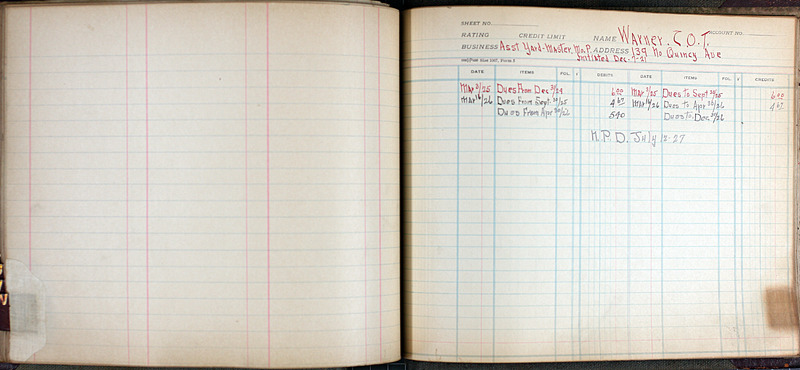 SHEET NO.
RATING CREDIT LIMIT NAME Warner. C.O.T. ACCOUNT NO.
BUSINESS Asst Yard-Master, Mo.P. ADDRESS 139 No Quincy Ave
Initiated Dec-7-21
DATE ITEMS FOL. ✓ DEBITS DATE ITEMS FOL. ✓ CREDITS
Mar 3/25 Dues From Dec 31/24 6 00 Mar 3/25 Dues To Sept 30/25 6 00
Mar 16/26 Dues From Sept. 30/25 4 67 Mar 16/26 Dues to Apr 30/26 4 67
Dues From Apr 30/26 5 40 Dues To. Dec. 31/26
N.P.D. July 12-27